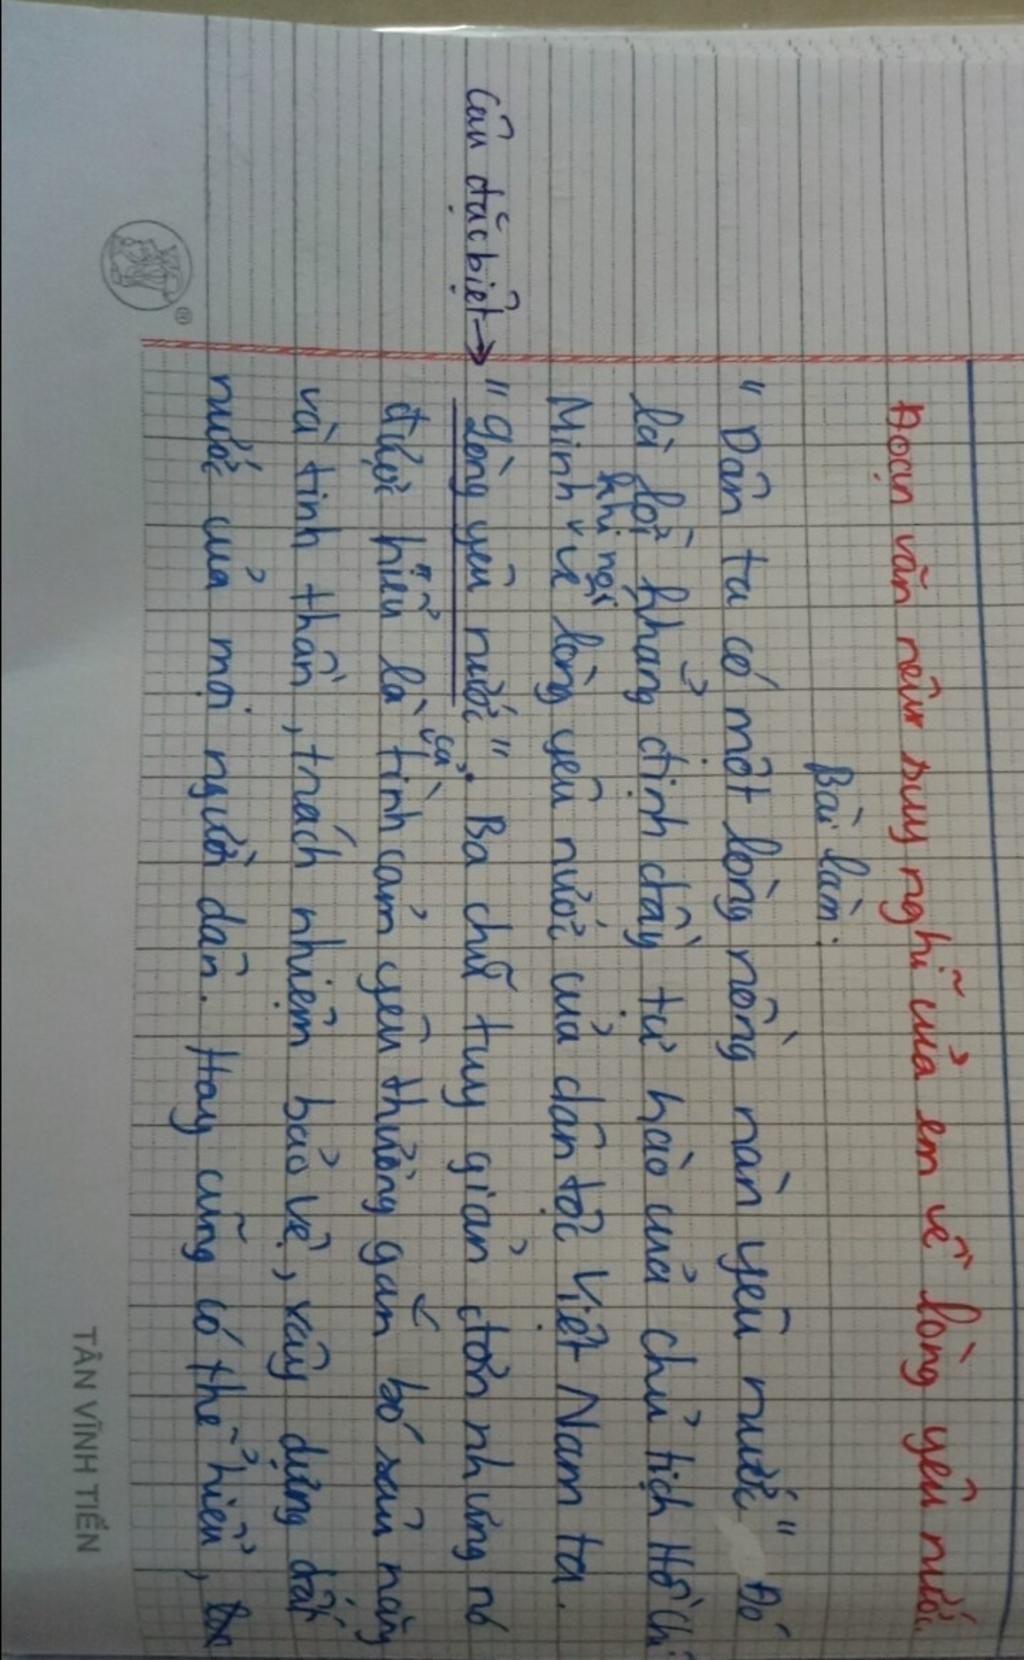 Đoạn văn nêu suy nghĩ của em về lòng yêu nước.
Bài làm:
" Dân ta có một lòng nồng nàn yêu nước" Đó
là lời khẳng định đầy tự hào của chủ tịch Hồ Chí
khi ngợi
Minh v về lòng yêu nước của dân tộc Việt Nam ta.
Câu đặc biệt → "lòng yêu nước". Ba chữ tuy giản đơn nhưng nó
được hiểu là tình cảm yêu thương gắn bó sâu nặng
cả
và tinh thần, trách nhiệm bảo vệ, xây dựng đất
nước của mọi người dân. Hay cũng có thể hiểu,
TÂN VĨNH TIẾN
®